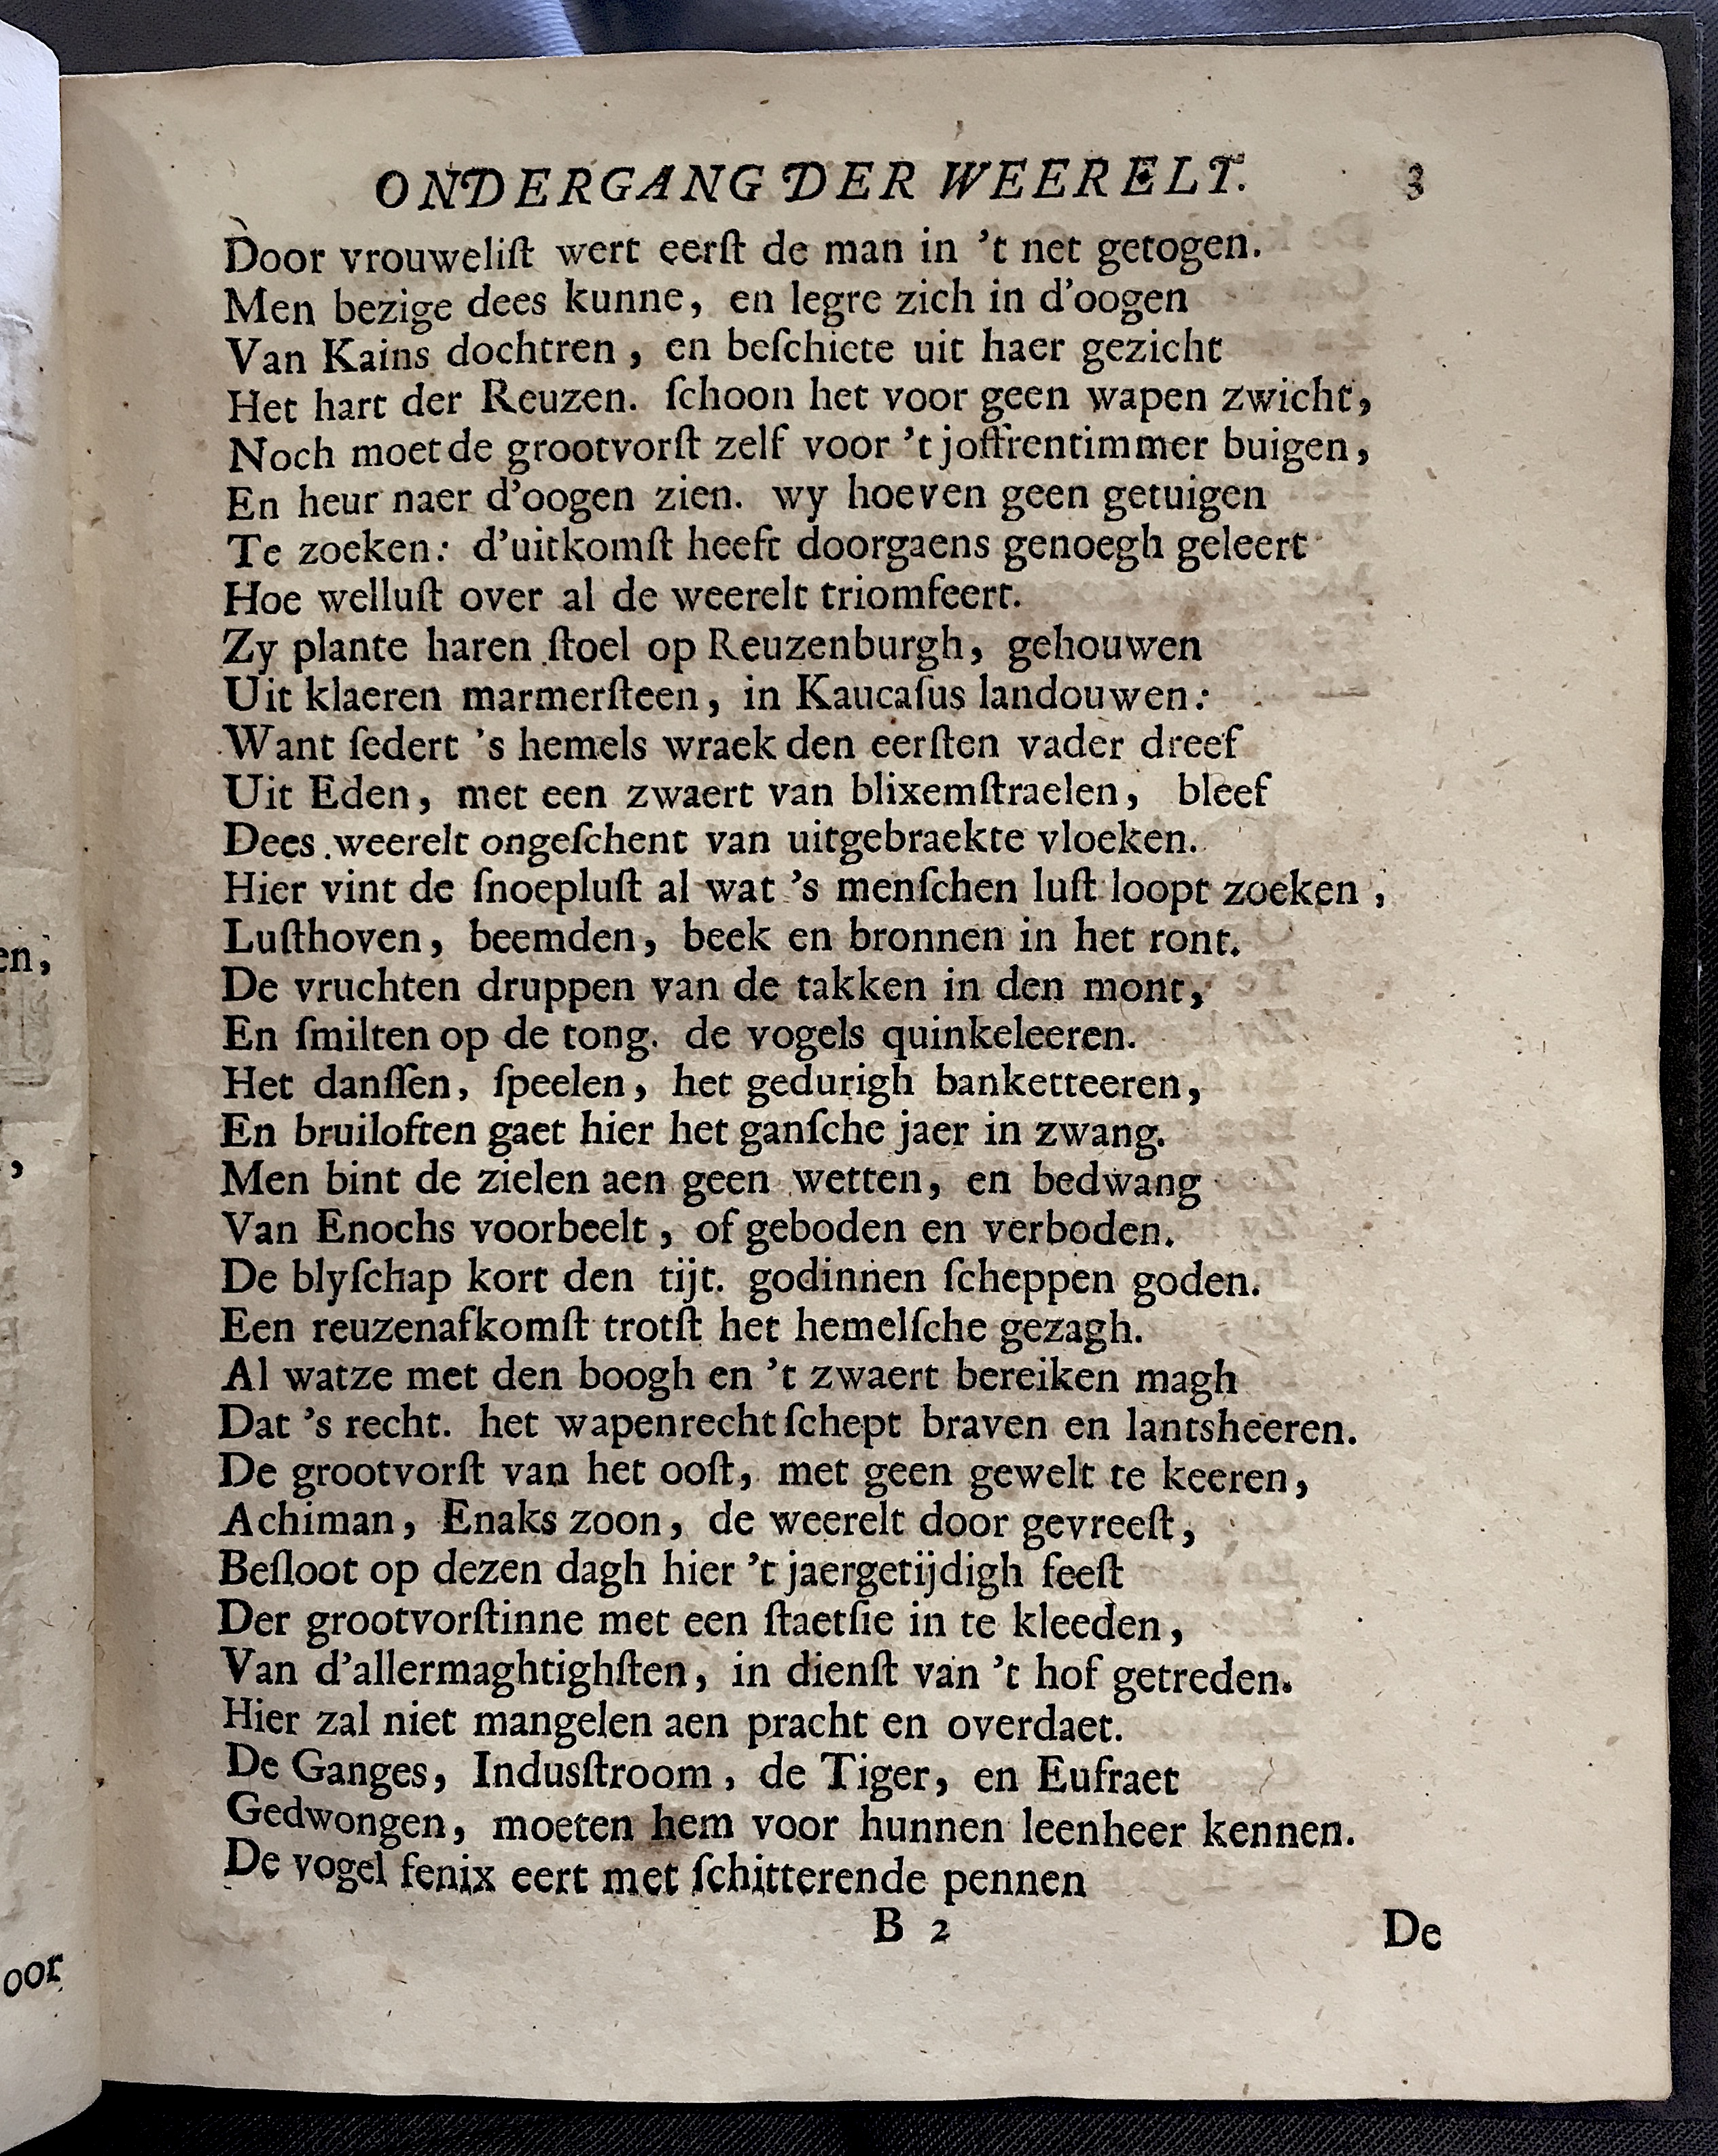 ONDERGANG DER WEERELT. 3
Door vrouweliſt wert eerſt de man in 't net getogen.
Men bezige dees kunne, en legre zich in d'oogen
Van Kains dochtren, en beſchiete uit haer gezicht
Het hart der Reuzen. ſchoon het voor geen wapen zwicht,
Noch moet de grootvorſt zelf voor 't joffrentimmer buigen,
En heur naer d'oogen zien. wy hoeven geen getuigen
Te zoeken: d'uitkomſt heeft doorgaens genoegh geleert
Hoe welluſt over al de weerelt triomfeert.
Zy plante haren ſtoel op Reuzenburgh, gehouwen
Uit klaeren marmerſteen, in Kaucaſus landouwen:
Want ſedert 's hemels wraek den eerſten vader dreef
Uit Eden, met een zwaert van blixemſtraelen, bleef
Dees weerelt ongeſchent van uitgebraekte vloeken.
Hier vint de ſnoepluſt al wat 's menſchen luſt loopt zoeken,
Luſthoven, beemden, beek en bronnen in het ront.
De vruchten druppen van de takken in den mont,
En ſmilten op de tong. de vogels quinkeleeren.
Het danſſen, ſpeelen, het gedurigh banketteeren,
En bruiloften gaet hier het ganſche jaer in zwang.
Men bint de zielen aen geen wetten, en bedwang
Van Enochs voorbeelt, of geboden en verboden.
De blyſchap kort den tijt. godinnen ſcheppen goden.
Een reuzenafkomſt trotſt het hemelſche gezagh.
Al watze met den boogh en 't zwaert bereiken magh
Dat 's recht. het wapenrecht ſchept braven en lantsheeren.
De grootvorſt van het ooſt, met geen gewelt te keeren,
Achiman, Enaks zoon, de weerelt door gevreeſt,
Beſloot op dezen dagh hier 't jaergetijdigh feeſt
Der grootvorſtinne met een ſtaetſie in te kleeden,
Van d'allermaghtighſten, in dienſt van 't hof getreden.
Hier zal niet mangelen aen pracht en overdaet.
De Ganges, Indusſtroom, de Tiger, en Eufraet
Gedwongen, moeten hem voor hunnen leenheer kennen.
De vogel fenix eert met ſchitterende pennen
B 2 De